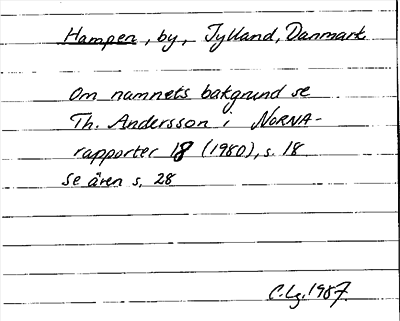 Hampen, by, Jylland, Danmark
Om namnets bakgrund se
Th. Andersson i NORNA-
rapporter 18 (1980), s. 18
se även s. 28
C. Lg. 1987.